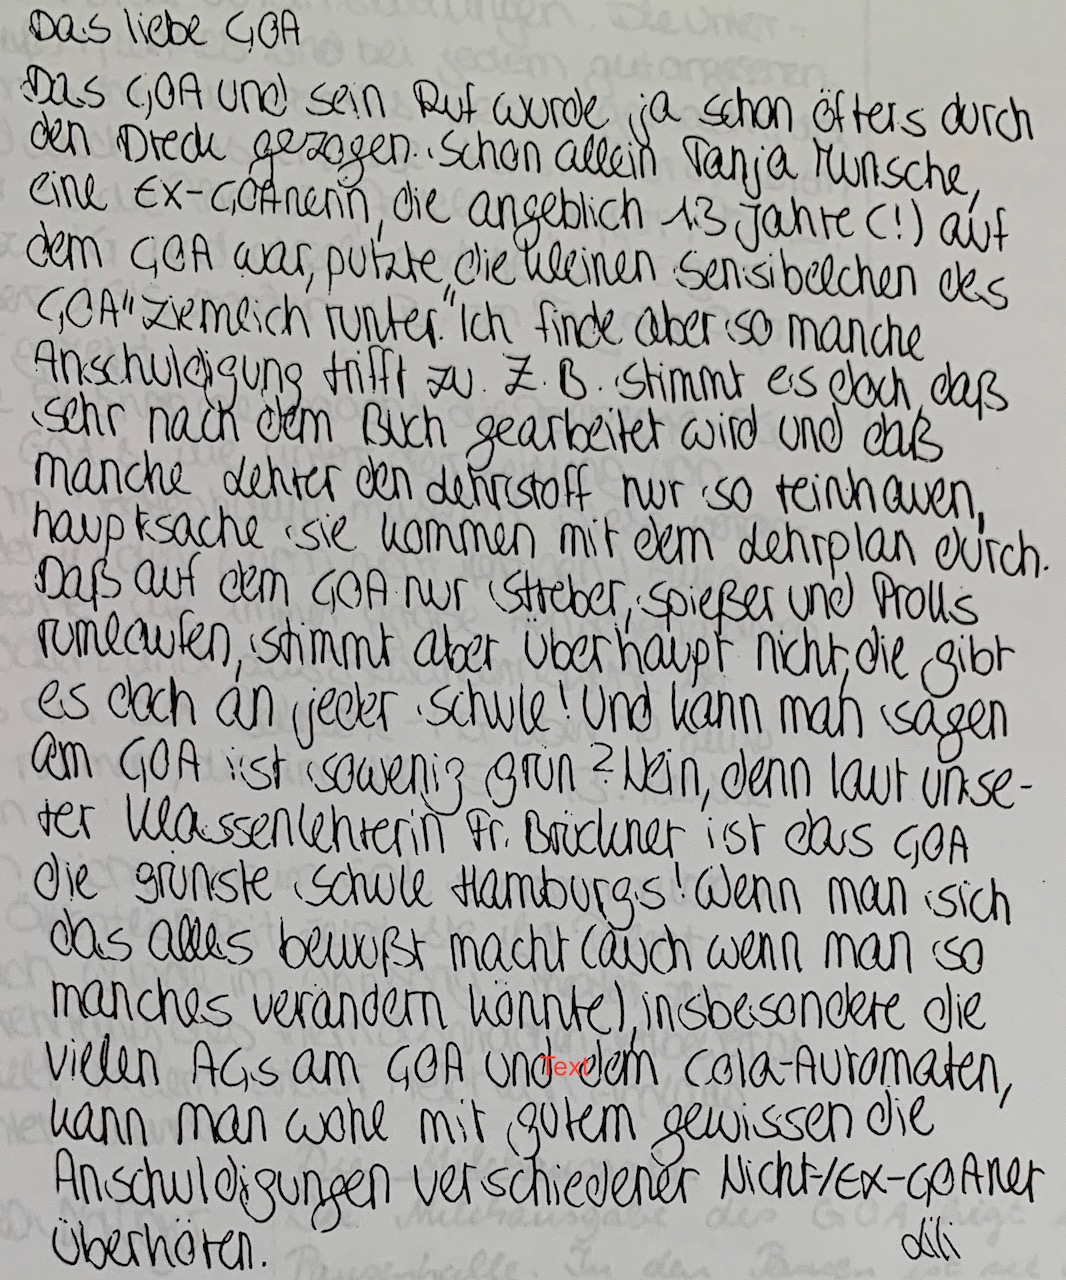 Das liebe GOA
Das GOA und sein Ruf wurde ja schon öfters durch
den Dreck gezogen. Schon allein Tanja Munsche,
eine EX-GOAnerin, die angeblich 13 Jahre (!) auf
dem GOA war, putzte die kleinen Sensibelchen des
GOA "ziemlich runter." Ich finde aber so manche
Anschuldigung trifft zu. Z.B. stimmt es doch, daß
sehr nach dem Buch gearbeitet wird und daß
manche Lehrer den Lehrstoff nur so reinhauen,
hauptsache sie kommen mit dem Lehrplan durch.
Daß auf dem GOA nur Streber, Spießer und Prolls
rumlaufen, stimmt aber überhaupt nicht, die gibt
es doch an jeder Schule! Und kann man sagen
am GOA ist sowenig grün? Nein, denn laut unse-
rer Klassenlehrerin Fr. Brückner ist das GOA
die grünste Schule Hamburgs! Wenn man sich
das alles bewußt macht (auch wenn man so
manches verändern könnte), insbesondere die
vielen AGs am GOA und Text dem Cola-Automaten,
kann man wohl mit gutem gewissen die
Anschuldigungen verschiedener Nicht-/EX-GOAner
überhören. Lili